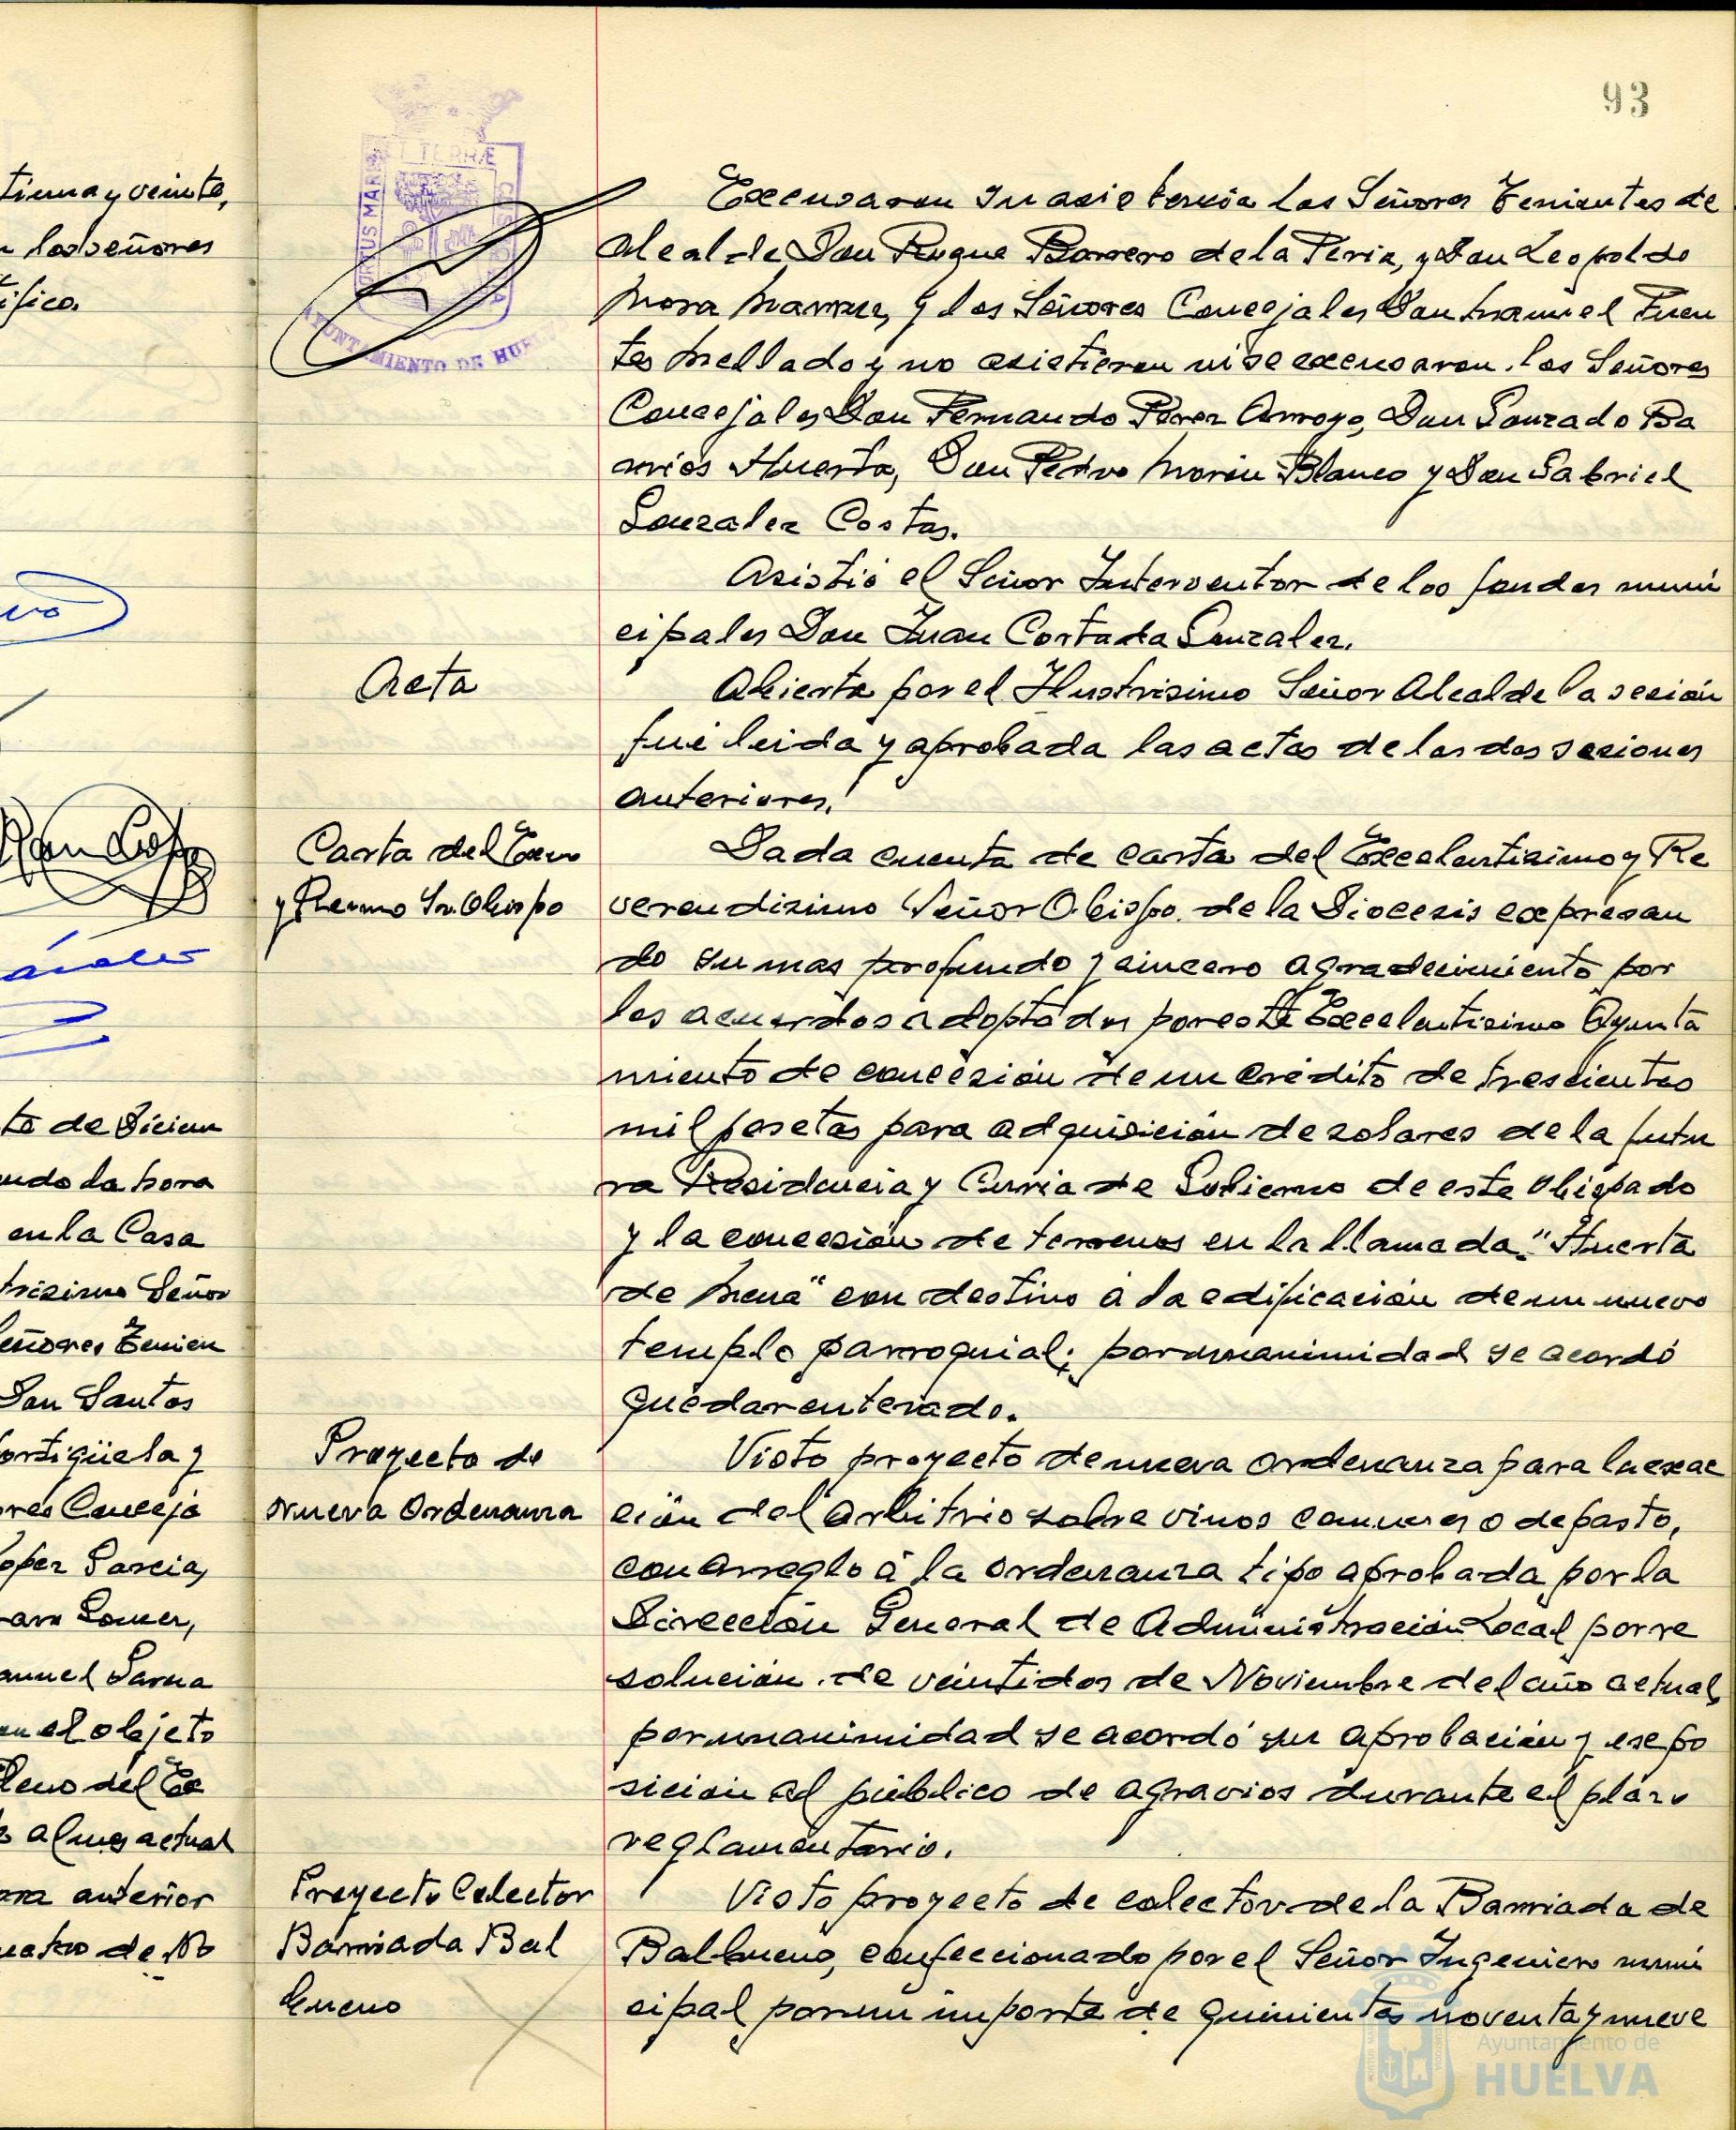 93
tiuna y veinte,
los señores
ífico.
to de Diciem
ndo la hora
en la Casa
trisimo Señor
eñores Tenien
Don Santos
ortigüela y
res Conceja
opez Garcia,
ara Gomez,
anuel Garcia
on el objeto
leno del Ex
al mes actual
anterior
uatro de No
PORTUS MARIS ET TERRÆ CUSTODIA
AYUNTAMIENTO DE HUELVA
Excusaron su asistencia los Señores Tenientes de
Alcalde Don Roque Barrero de la Feria, y Don Leopoldo
Mora Marrue, y los Señores Concejales Don Manuel Fuen
tes Mellado y no asistieron ni se excusaron los Señores
Concejales Don Fernando Perez Arroyo, Don Gonzado Ba
rrios Huerta, Don Pedro Morón Blanco y Don Gabriel
Gonzalez Costas.
Asistió el Señor Interventor de los fondos muni
cipales Don Juan Cortada Gonzalez.
Acta
Abierta por el Ilustrisimo Señor Alcalde la sesión
fué leida y aprobada las actas de las dos sesiones
anteriores.
Carta del Excmo
y Rvermo Sr. Obispo
Dada cuenta de carta del Excelentisimo y Re
verendisimo Señor Obispo de la Diocesis expresan
do su mas profundo y sincero agradecimiento por
los acuerdos adoptados por este Excelentisimo Ayunta
miento de concesión de un crédito de trescientas
mil pesetas para adquisición de solares de la futu
ra Residencia y Curia de Gobierno de este Obispado
y la concesión de terrenos en la llamada "Huerta
de Mena" con destino á la edificación de un nuevo
templo parroquial; por unanimidad se acordó
quedar enterado.
Proyecto de
nueva Ordenanza
Visto proyecto de nueva ordenanza para la exac
ción del arbitrio sobre vinos comunes o de pasto,
con arreglo á la ordenanza tipo aprobada por la
Dirección General de Administración Local por re
solución de veintidos de Noviembre del año actual,
por unanimidad se acordó su aprobación y expo
sición al público de agravios durante el plazo
reglamentario.
Proyecto Colector
Barriada Bal
bueno
Visto proyecto de colector de la Barriada de
Balbueno, confeccionado por el Señor Ingeniero muni
cipal por un importe de quinientas noventa y nueve
Ayuntamiento de
HUELVA